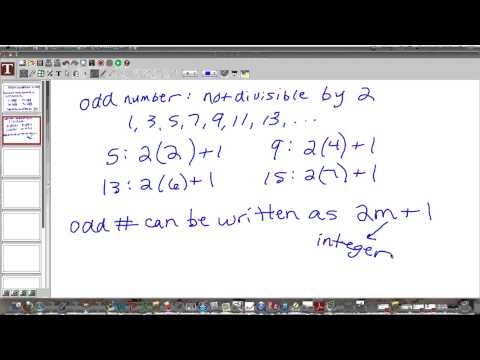 odd number: not divisible by 2
1, 3, 5, 7, 9, 11, 13, ...
5: 2(2)+1 9: 2(4)+1
13: 2(6)+1 15: 2(7)+1
odd # can be written as 2m+1
integer